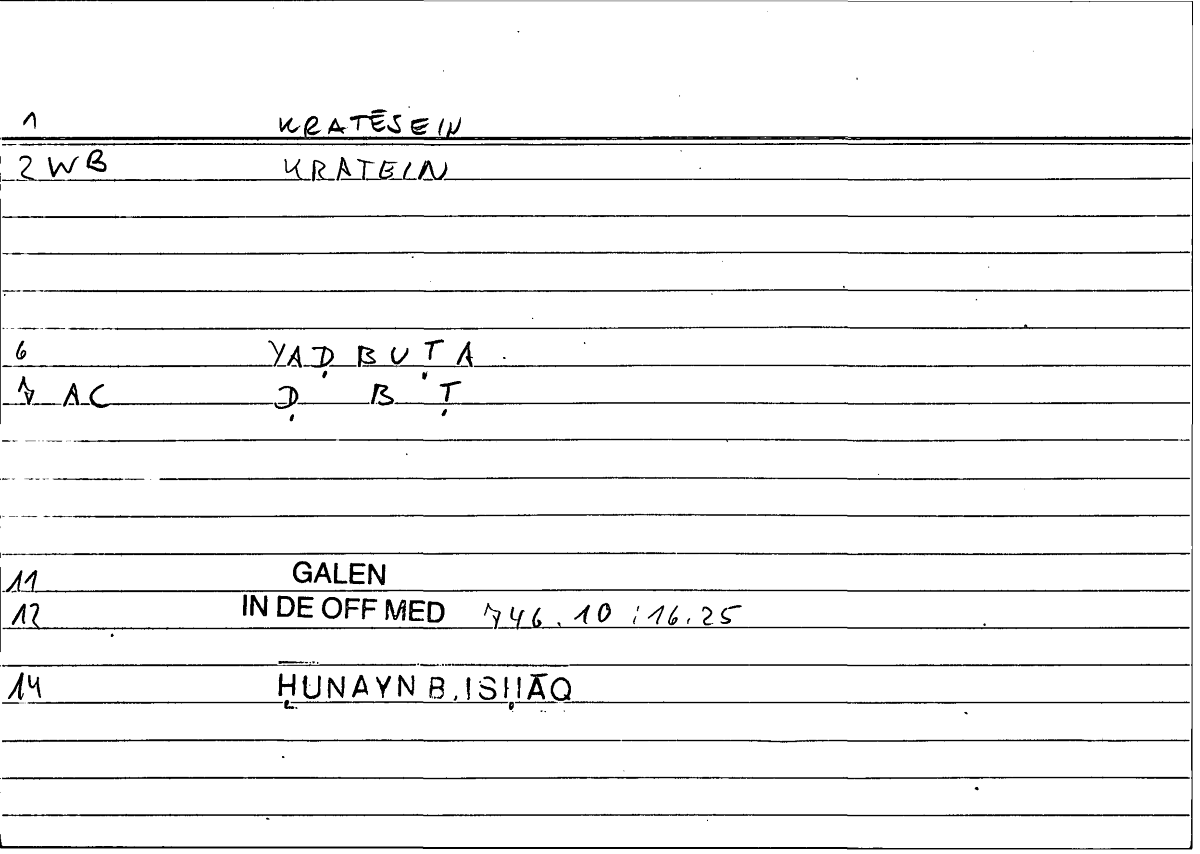 1 KRATĒSEIN
2 WB KRATEIN
6 YAḌBUṬA
7 AC Ḍ B Ṭ
11 GALEN
12 IN DE OFF MED 746.10 ; 16.25
14 ḤUNAYN B. ISḤĀQ